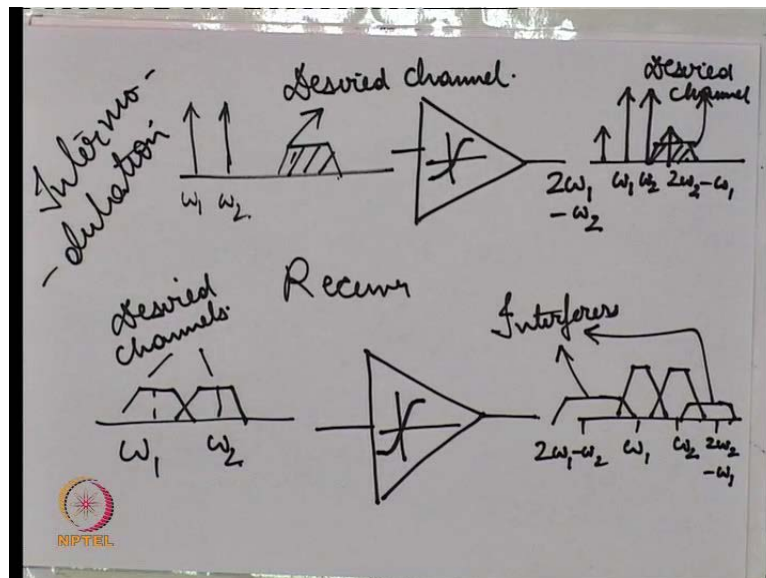 Intermo-
-dulation
Desried channel.
ω₁ ω₂.
Desried
channel
2ω₁
-ω₂
ω₁ ω₂ 2ω₂-ω₁
Receiver
Desried
channels.
ω₁ ω₂
Interferers
2ω₁-ω₂ ω₁ ω₂ 2ω₂
-ω₁
NPTEL